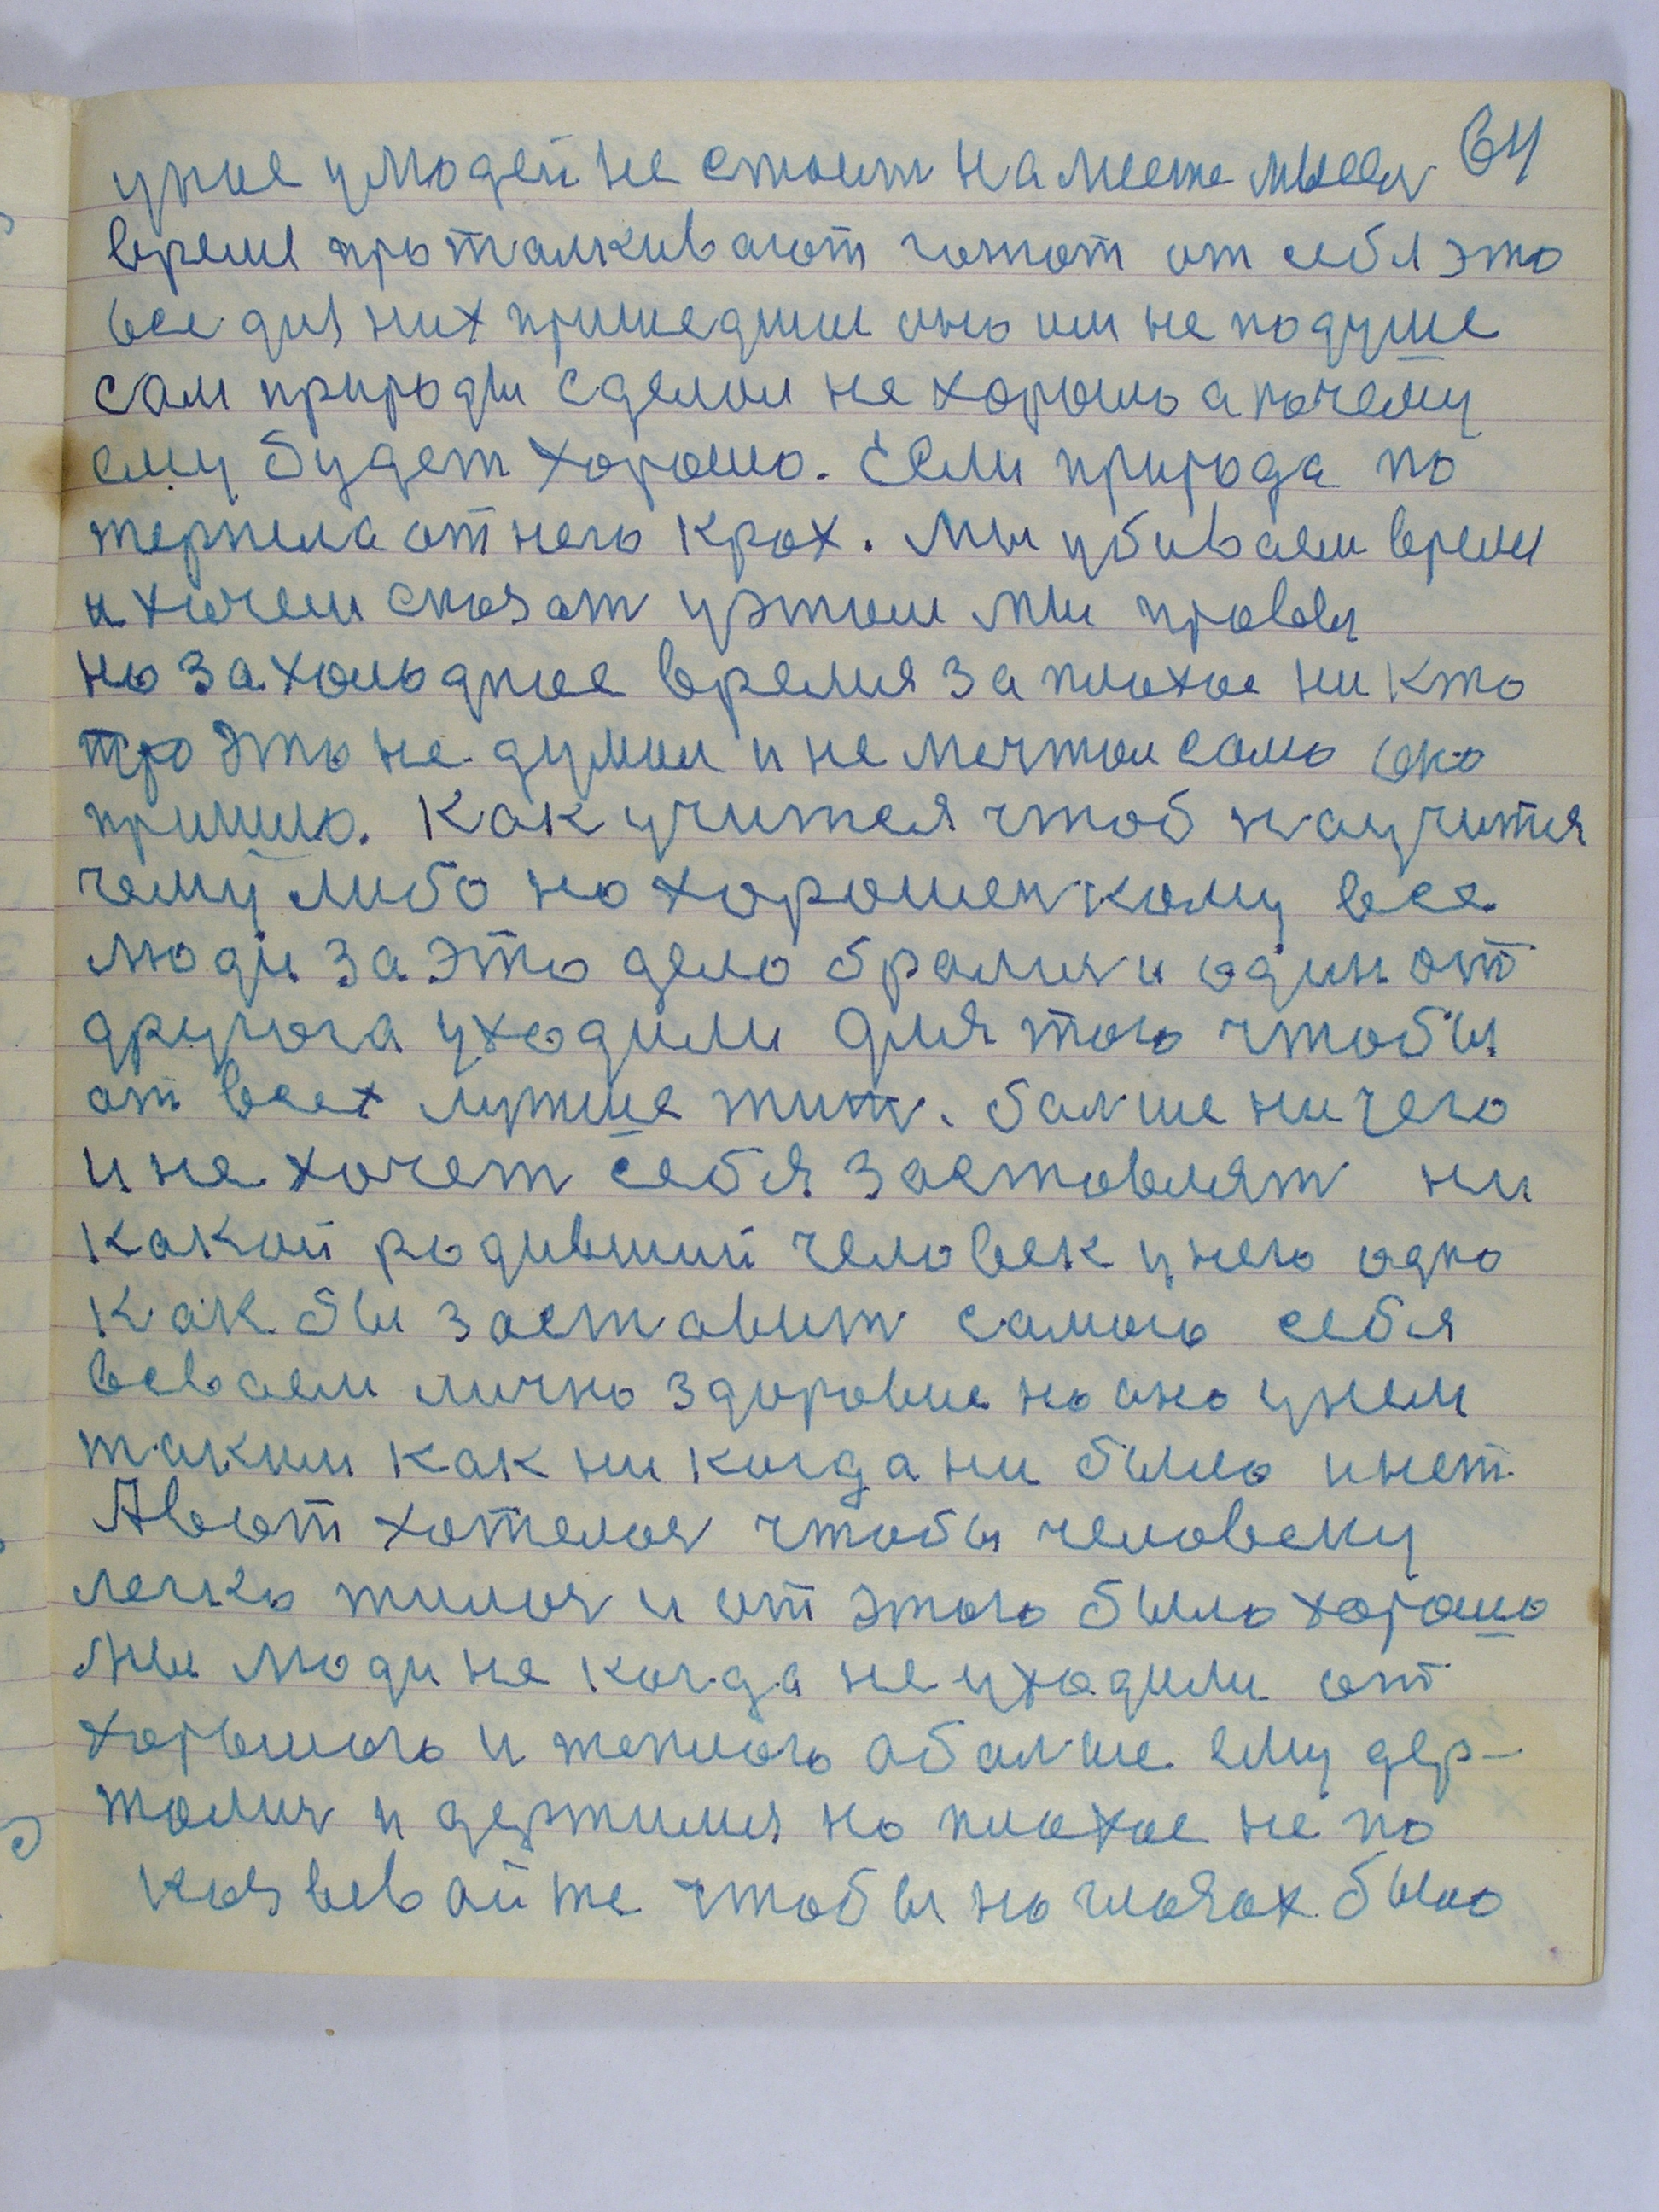 64
у людей не стоит на месте мысля
время проталкивают гонют от себя это
все для них пришедшие оно им не по душе
сам природи сделал не хорошо а почему
ему будет хорошо. Если природа по
терпела от него крах. Мы убиваем время
и хочем сказат у этом мы правы
но за холодное время за плохое ни кто
про это не думал и не мечтал само оно
пришло. Как учится чтоб научится
чему либо но хорошенкому все
люди за это дело бралися и один от
другога уходили для того чтобы
от всех лутше жит. балше ни чего
и не хочет себя заставлят ни
какой родивший человек у него одно
как бы заставит самого себя
всваем лично здоровие но оно у нем
таким как ни когда ни было и нет
А вот хотелоя чтобы человеку
легко жилоя и от этого было хорошо
мы люди не когда не уходили от
хорошого и теплого а балше ему дер-
жалия и держимия но плохое не по
казвевайте чтобы на глазах было